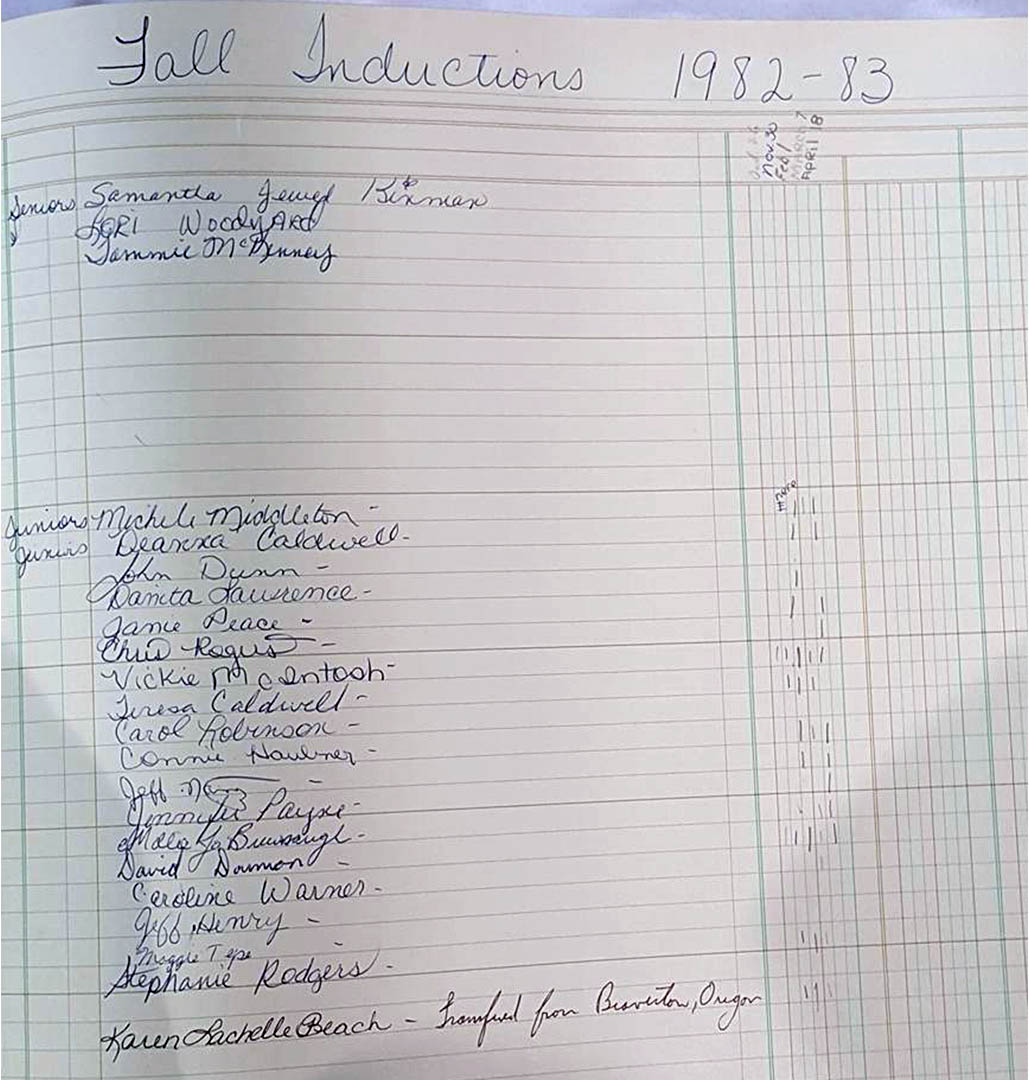 Fall Inductions 1982-83
Nov. 30
Feb 1
MARCH 7
APRIL 18
Seniors Samantha Jewel
LORI WOODYARD
Tammie McKinney
Juniors Michele Middleton -
Juniors Deanna Caldwell -
John Dunn -
Danita Lawrence -
Janie Peace -
Chris Rogers -
Vickie McIntosh -
Teresa Caldwell -
Carol Robinson -
Connie Haubner -
Jeff -
Jennifer Payne -
David
Caroline Warner -
Jeff Henry -
Maggie Tepe -
Stephanie Rodgers -
Karen Lachelle Beach - Transfered from Beaverton, Oregon